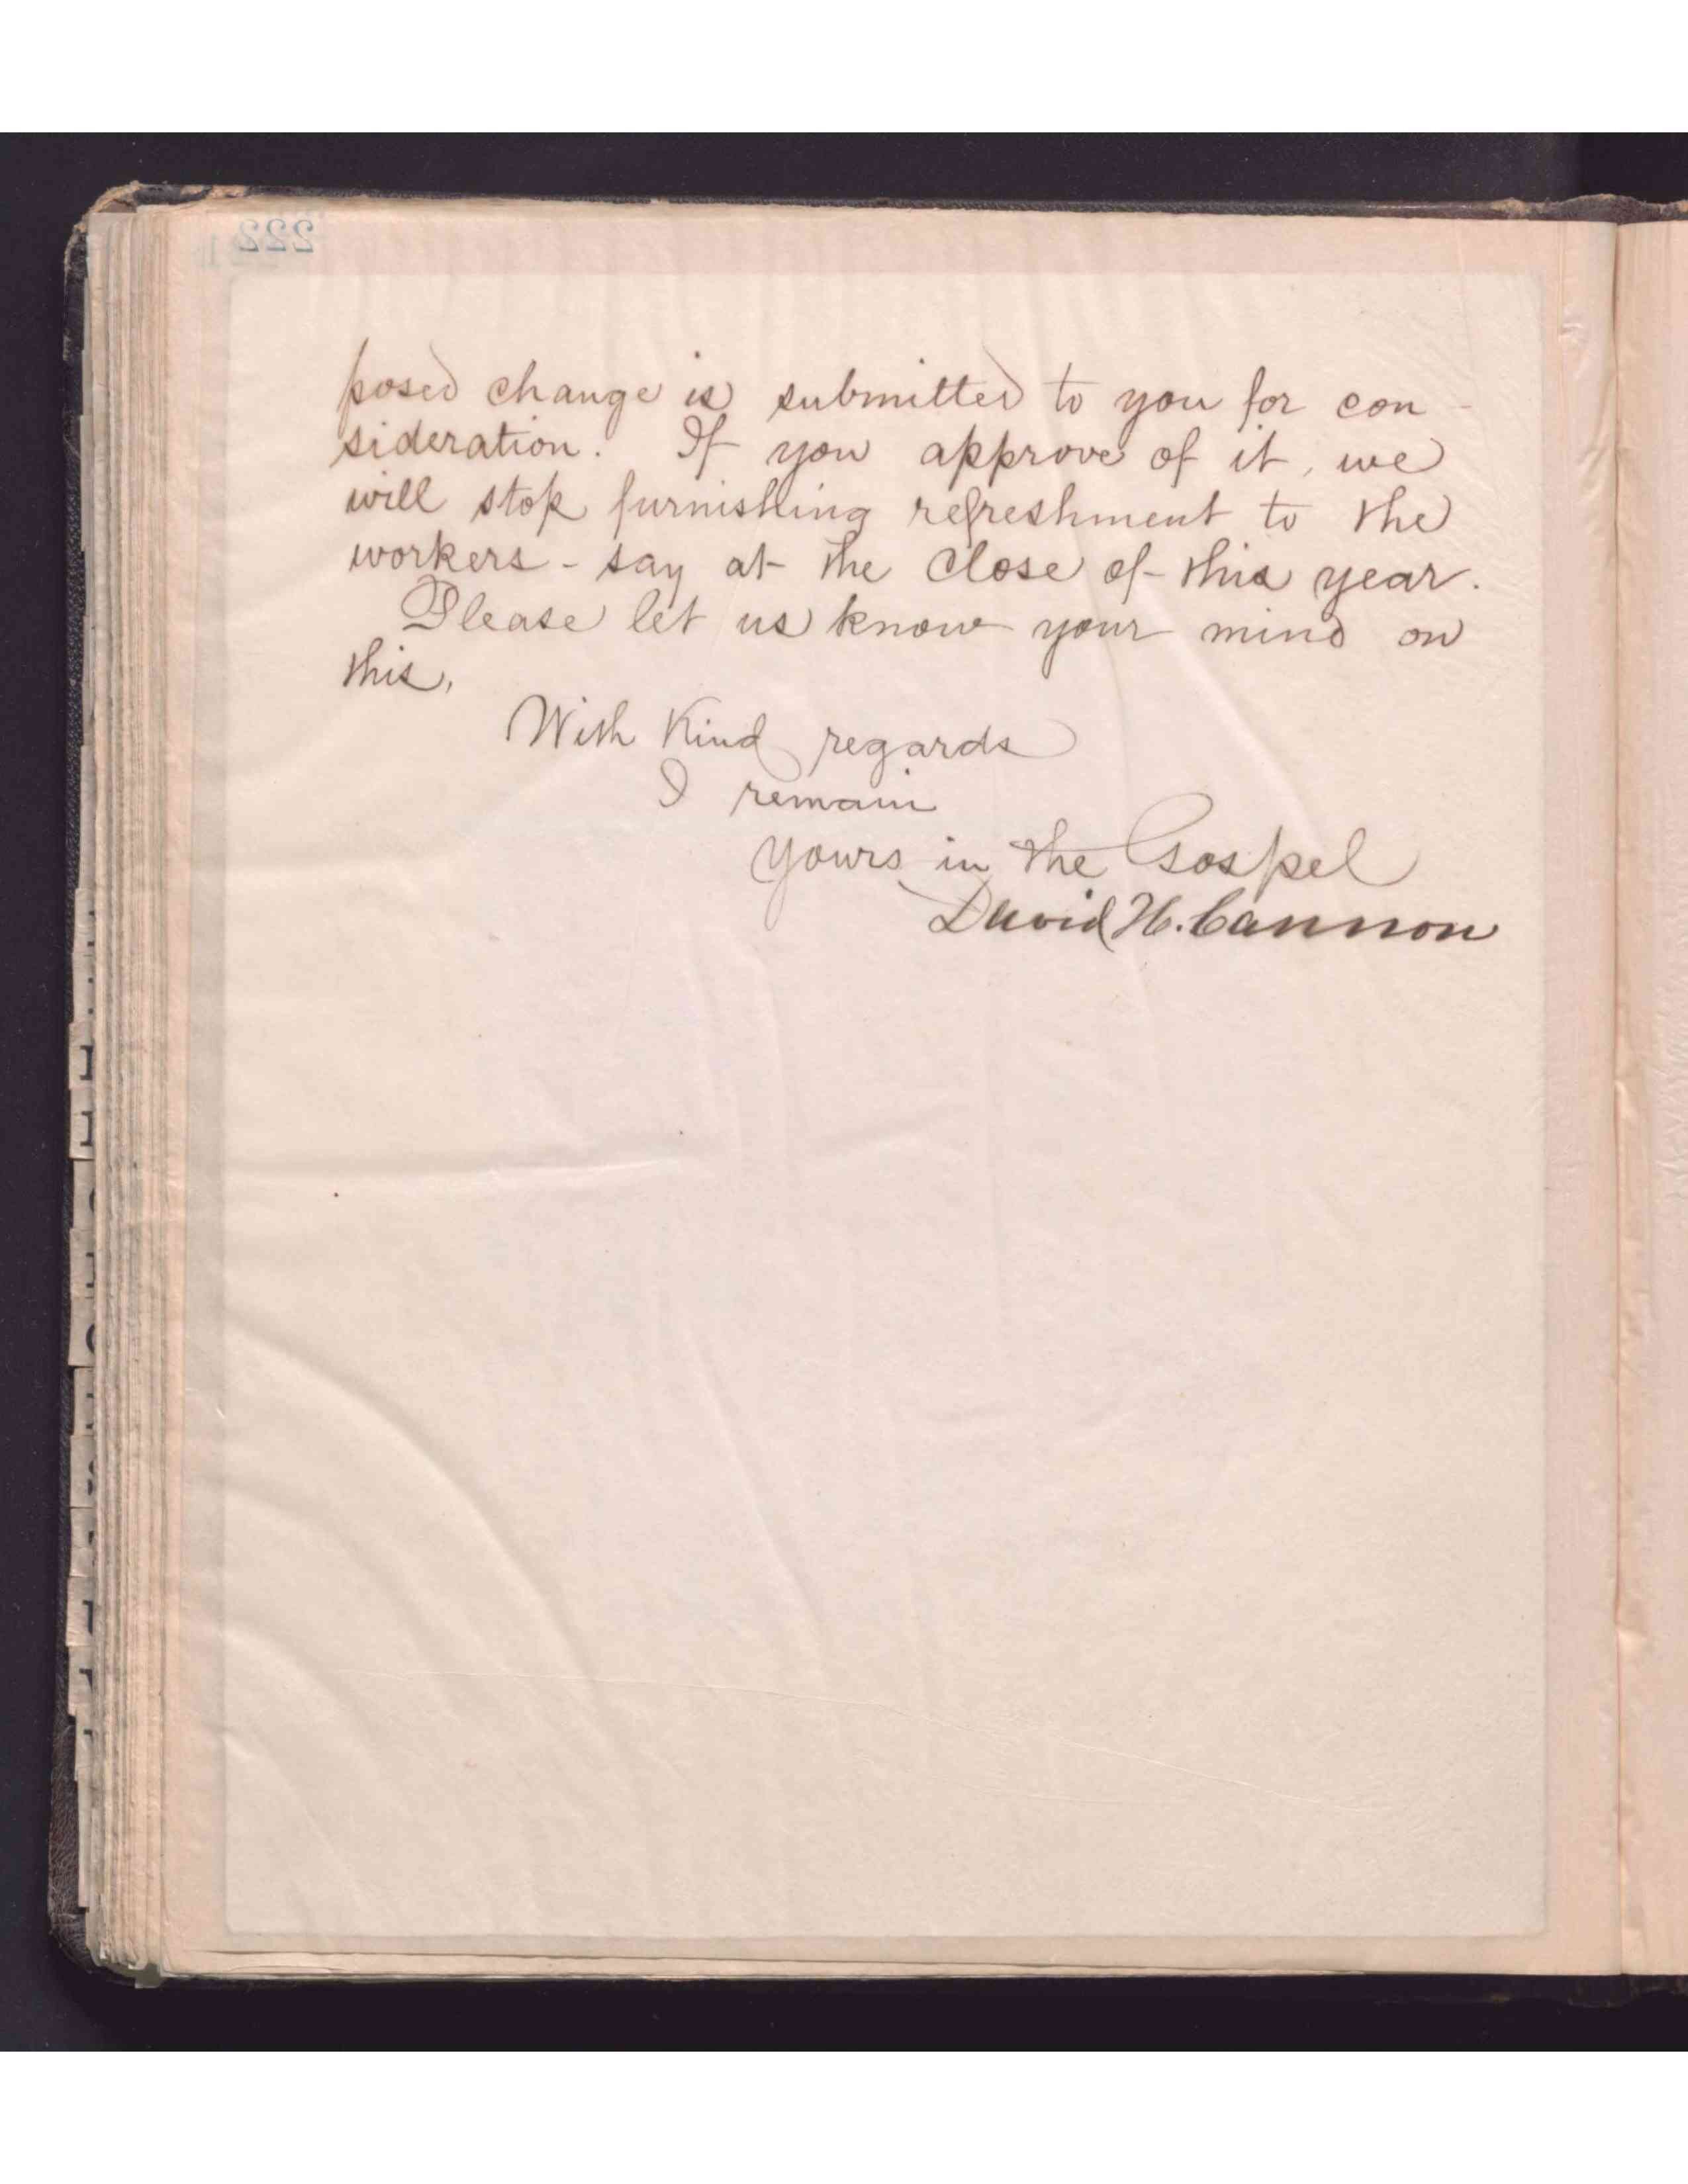 222
posed change is submitted to you for con-
sideration. If you approve of it, we
will stop furnishing refreshment to the
workers - say at the close of this year.
Please let us know your mind on
this.
With Kind regards
I remain
Yours in the Gospel
David H. Cannon